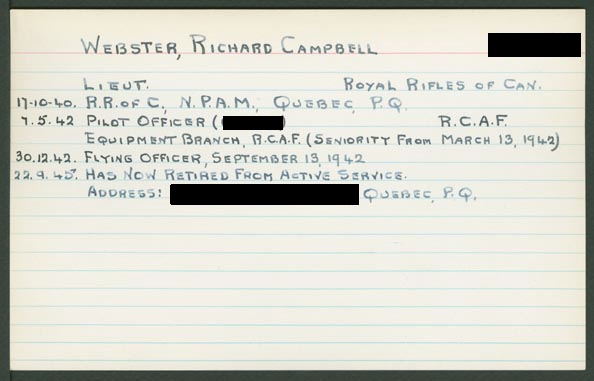 WEBSTER, RICHARD CAMPBELL
LIEUT. ROYAL RIFLES OF CAN.
17-10-40. R.R. OF C., N.P.A.M., QUEBEC, P.Q.
7.5.42 PILOT OFFICER ( ) R.C.A.F.
EQUIPMENT BRANCH, R.C.A.F. (SENIORITY FROM MARCH 13, 1942)
30.12.42. FLYING OFFICER, SEPTEMBER 13, 1942
22.9.45. HAS NOW RETIRED FROM ACTIVE SERVICE.
ADDRESS: QUEBEC, P.Q.